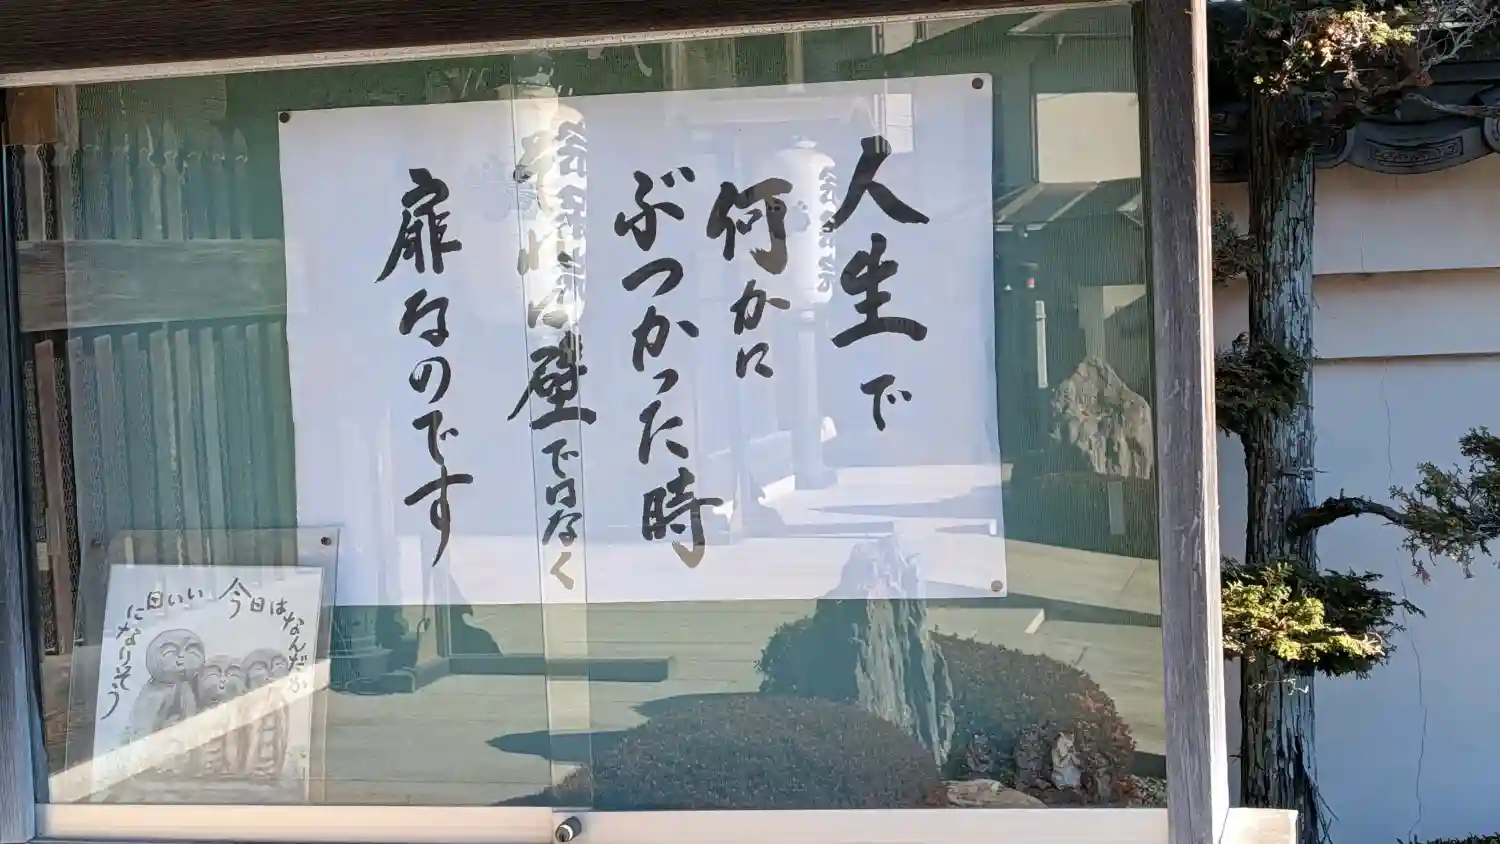 人生で
何かに
ぶつかった時
それは壁ではなく
扉なのです
今日はなんだか
いい日になりそう